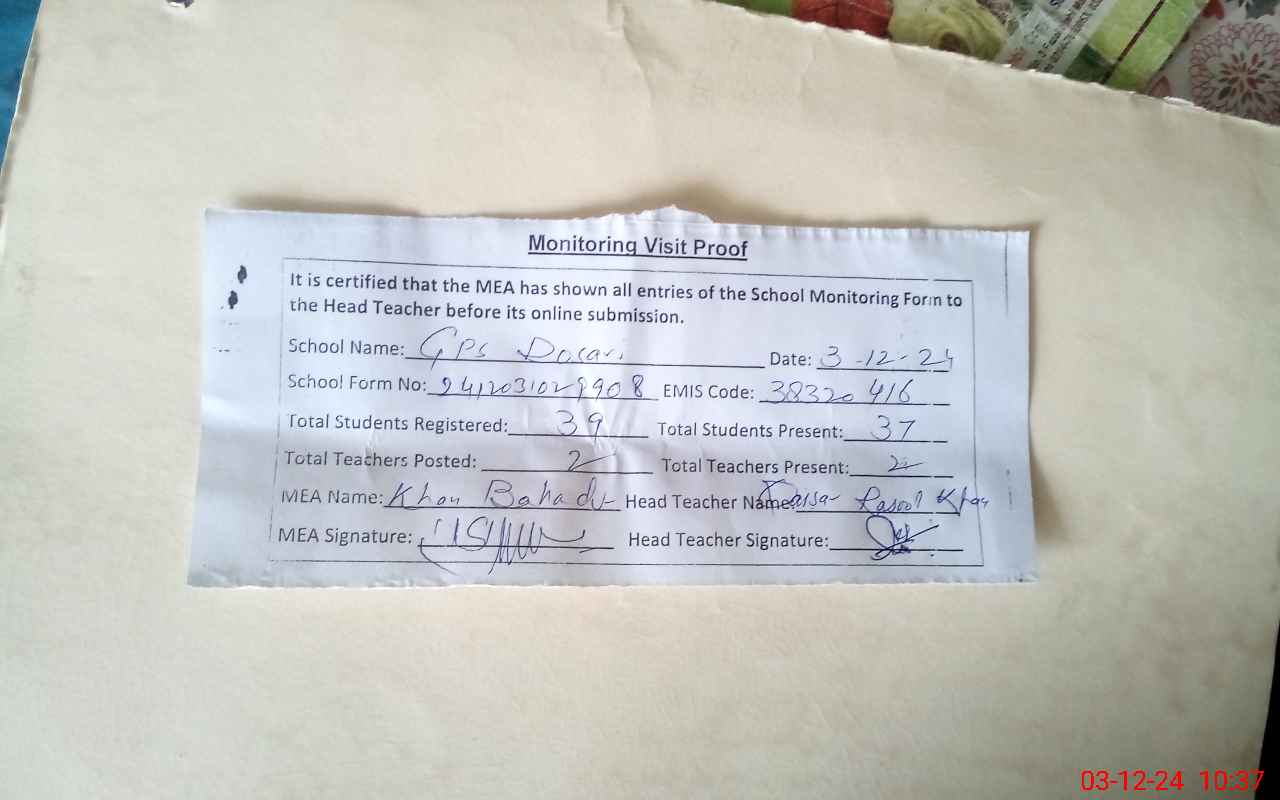 Monitoring Visit Proof
It is certified that the MEA has shown all entries of the School Monitoring Form to
the Head Teacher before its online submission.
School Name: GPS Dosari Date: 3-12-24
School Form No: 2412031029908 EMIS Code: 38320416
Total Students Registered: 39 Total Students Present: 37
Total Teachers Posted: 2 Total Teachers Present: 2
MEA Name: Khan Bahadur Head Teacher Name: Qaisar Rasool Khan
MEA Signature: Head Teacher Signature:
03-12-24 10:37